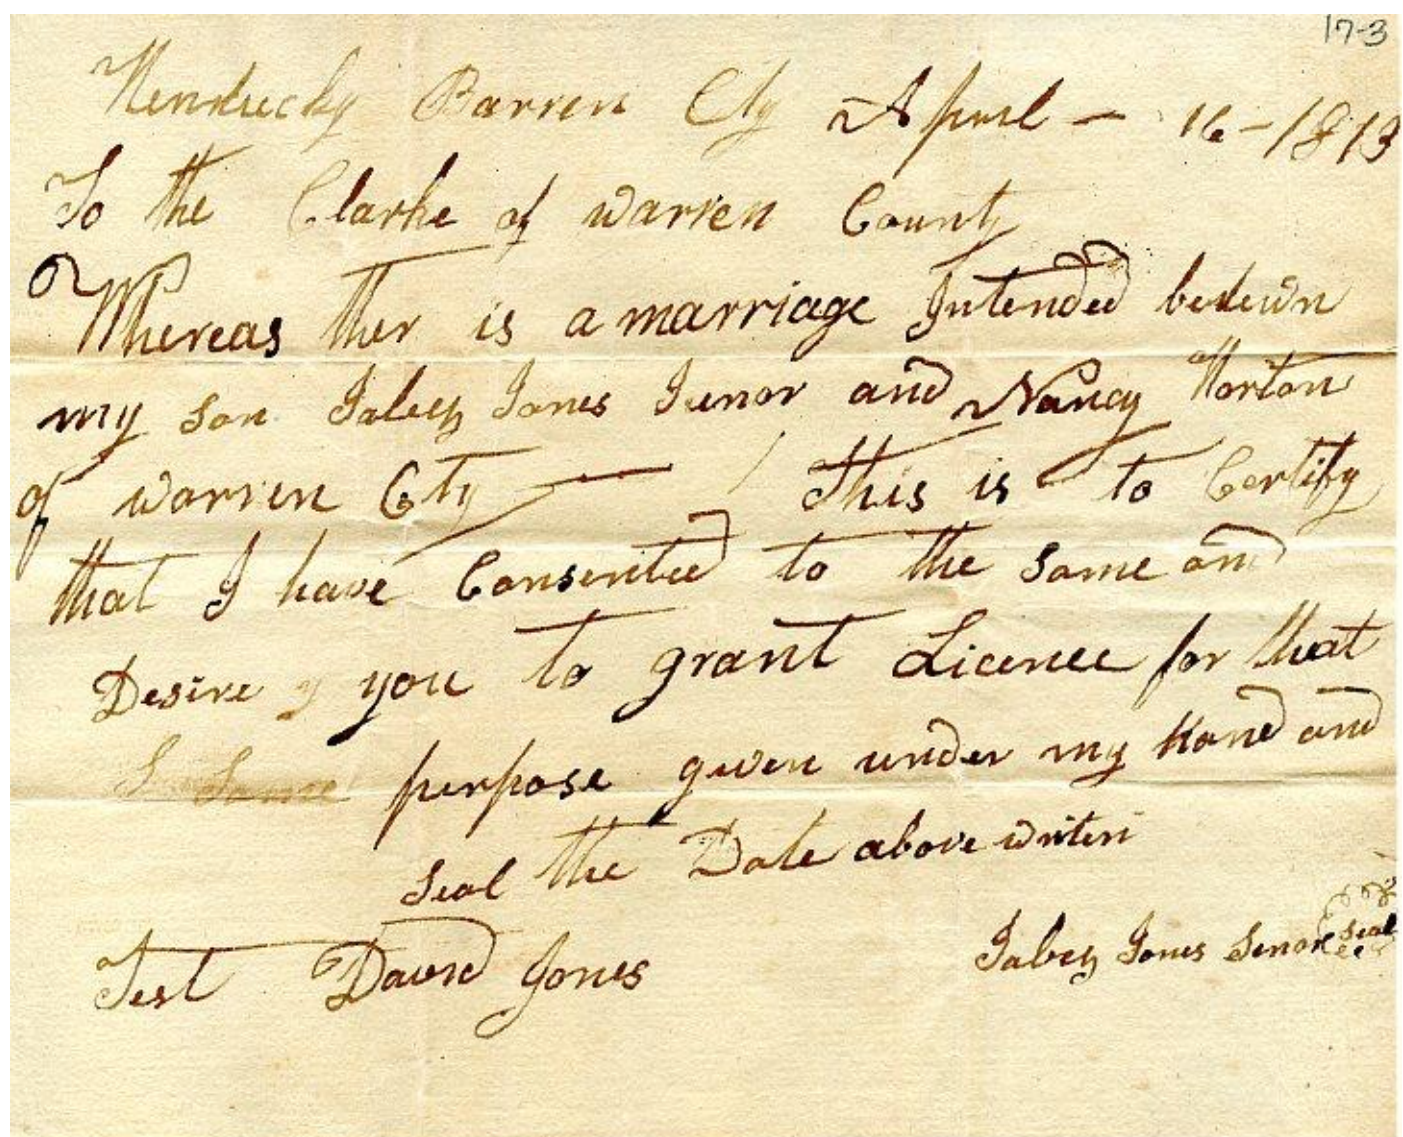 17-3
Kentucky Barren Cty April - 16 - 1813
To the Clarke of Warren County
Whereas ther is a marriage Intended betewn
my son Jabez Jones Junor and Nancy Norton
of warren Cty - This is to Certify
that I have Consented to the same and
Desire you to grant Licence for that
Same perpose given under my Hand and
Seal the Date above writen
Jabez Jones Senor Seal
Test David Jones